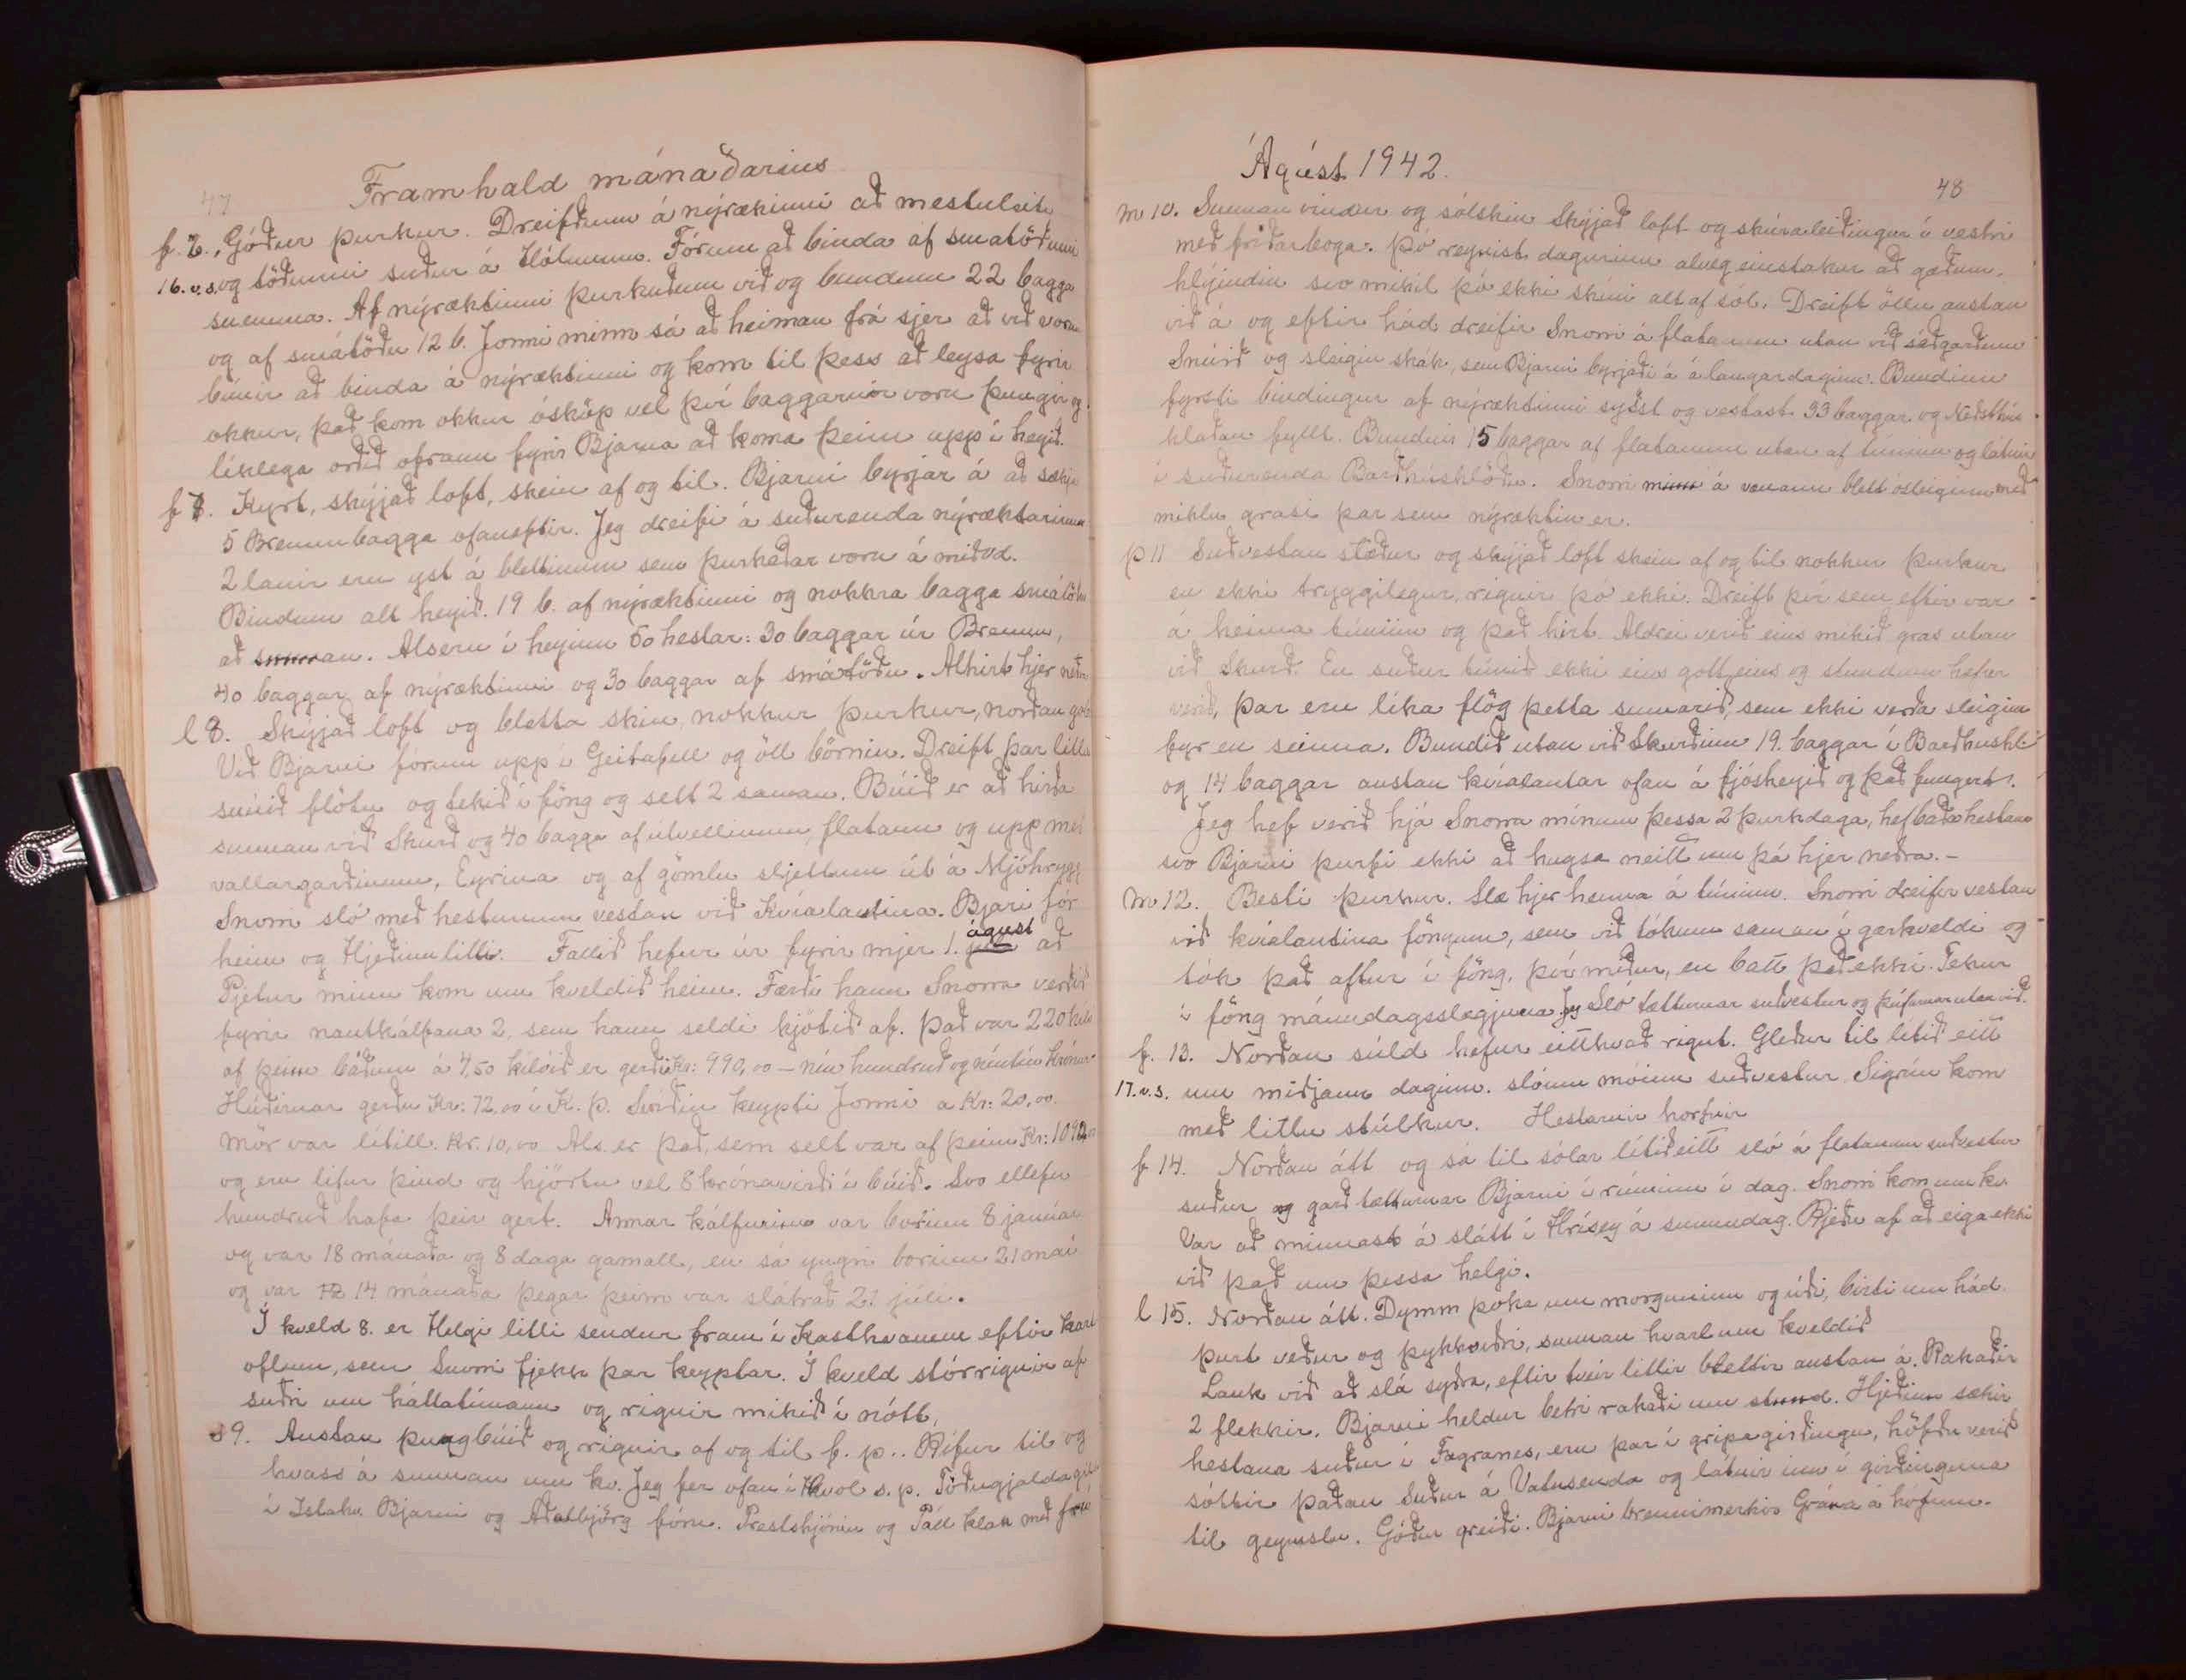 47
Framhald mánaðarins
f. 6. Góður þurkur. Dreifðum á nýrækinni að mestuleiti
16. v.s. og töðunni suður á Hólnum. Fórum að binda af smátöðunni
snemma. Af nýræktinni þurkuðum við og bundum 22 bagga
og af smátöðu 12 b. Jonni minn sá að heiman frá sjer að við vorum
búnir að binda á nýræktinni og kom til þess að leysa fyrir
okkur, það kom okkur ósköp vel því baggarnir voru þungir og
líklega orðið ofraun fyrir Bjarna að koma þeim upp í heyið.
f 7. Kyrt, skýjað loft, skein af og til. Bjarni byrjar á að sækja
5 Bremubagga ofaneftir. Jeg dreifi á suðurenda nýræktarinnar
2 lanir eru yst á blettinum sem þurkaðar voru á miðvd.
Bindum alt heyið. 19 b. af nýræktinni og nokkra bagga smátöðu
að sunnan. Alseru í heyinu 50 hestar: 30 baggar úr Bremu,
40 baggar af nýræktinni og 30 baggar af smátöðu. Alhirt hjer neðra
l 8. Skýjað loft og bletta skin, nokkur þurkur, norðan gola
Við Bjarni fórum upp í Geitafell og öll börnin. Dreift þar litlu
snúið flötu og tekið í föng og sett 2 saman. Búið er að hirða
sunnan við Skurð og 40 bagga af útvellinum, flatann og upp með
vallargarðinum, Eyrina og af gömlu sljettum út á Mjóhrygg
Snorri sló með hestunum vestan við Kvíalautina. Bjari fór
heim og Hjeðinn litli. Fallið hefur úr fyrir mjer 1. júlí ágúst að
Pjetur minn kom um kveldið heim. Færði hann Snorra verðið
fyrir nautkálfana 2, sem hann seldi kjötið af. Það var 220 kíló
af þeim báðum á 4,50 kílóið er gerði Kr: 990,00 – níu hundruð og níutíu krónur
Húðirnar gerðu Kr: 72,00 í K. þ. Sviðin keypti Jonni a Kr: 20,00.
Mör var lítill. Kr. 10,00 Als er það, sem selt var af þeim Kr: 1092,00
og eru lifur þind og hjörtu vel 8 krónavirði í búið. Svo ellefu
hundruð hafa þeir gert. Annar kálfurinn var borinn 8 janúar
og var 18 mánaða og 8 daga gamall, en sá yngri borinn 21 maí
og var 14 mánaða þegar þeim var slátrað 21 júlí.
Í kveld 8. er Helgi litli sendur fram í Kasthvamm eftir kart
öflum, sem Snorri fjekk þar keyptar. Í kveld stórrignir af
suðri um háttatímann og rignir mikið í nótt,
s 9. Austan þungbúið og rignir af og til f. p.. Rífur til og
hvass á sunnan um kv. Jeg fer ofan í Hvol s. p. Töðugjaldagildi
í Íslakv. Bjarni og Aðalbjörg fóru. Prestshjónin og Páll klak með frú
Ágúst 1942.
48
m 10. Sunnan vindur og sólskin Skýjað loft og skúraleiðingur í vestri
með friðarboga. Þó reynist dagurinn alveg einstakur að gæðum,
hlýindin svo mikil þó ekki skíni alt af sól. Dreift öllu austan
við á og eftir hád dreifir Snorri á flatanum utan við sáðgarðinn
Snúið og slegin skák, sem Bjarni byrjaði á á laugardaginn. Bundinn
fyrsti bindingur af nýræktinni syðst og vestast. 33 baggar og Neðsthús
hlaðan fyllt. Bundnir 15 baggar af flatanum utan af túninu og látnir
í suðurenda Barðhúshlöðu. Snorri minn á venann blett ósleginn með
miklu grasi þar sem nýræktin er.
þ 11 Suðvestan stæður og skýjað loft skein af og til nokkur þurkur
en ekki tryggilegur, rignir þó ekki. Dreift því sem eftir var
á heima túninu og það hirt. Aldrei verið eins mikið gras utan
við Skurð. En suður túnið ekki eins gott eins og stundum hefur
verið, þar eru líka flög þetta sumarið, sem ekki verða slegin
fyr en seinna. Bundið utan við Skurðinn 19. baggar í Barðhúshl
og 14 baggar austan kvíalautar ofan á fjósheyið og það fungert.
Jeg hef verið hjá Snorra mínum þessa 2 þurkdaga, hef baða hestana
svo Bjarni þurfi ekki að hugsa neitt um þá hjer neðra.-
M 12. Besti þurkur. Slæ hjer heima á túninu. Snorri dreifir vestan
við kvíalautina föngum, sem við tókum saman í gærkveldi og
tók það aftur í föng, því miður, en batt það ekki. Tekur
í föng mánudagsslægjuna. Jeg Sló tætturnar suðvestur og þúfurnar utan við.
f. 13. Norðan súld hefur eitthvað rignt. Gleður til lítið eitt
17. v. s. um miðjann daginn. slóum móinn suðvestur Sigrún kom
með litlu stúlkur. Hestarnir horfnir
f 14. Norðan átt og sá til sólar lítið eitt sló á flatanum suðvestur
suður og garð tætturnar Bjarni í rúminu í dag. Snorri kom um kv.
Var að minnast á slátt í Hrísey á sunnudag. Rjeðu af að eiga ekki
við það um þessa helgi.
l 15. Norðan átt. Dymm þoka um morguninn og úði, birti um hád.
þurt veður og þykkviðri, sunnan hvarl um kveldið
Lauk við að slá syðra, eftir tveir litlir blettir austan á. Rakaðir
2 flekkir. Bjarni heldur betri rakaði um stund. Hjeðinn sækir
hestana suður í Fagranes, eru þar í gripagirðingu, höfðu verið
sóttir þaðan suður á Vatnsenda og látnir inn í girðinguna
til geymslu. Góður greiði. Bjarni brennimerkir Grána á hófum.